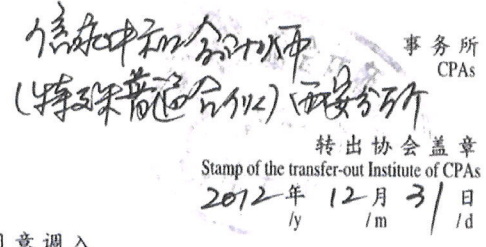 信永中和会计师 事务所
CPAs
(特殊普通合伙)西安分所
转出协会盖章
Stamp of the transfer-out Institute of CPAs
2012年 12月 31日
/y /m /d
同意调入